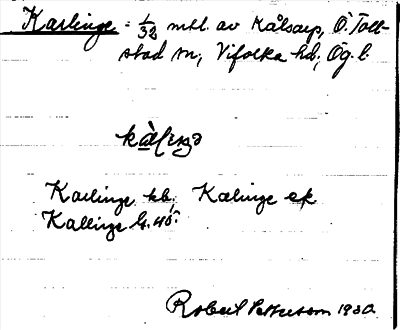 Karlinge = 1/32 mtl. av Kålsarp, Ö. Toll-
stad sn, Vifolka hd, Ög. l.
Karlinge kb; Kælinge ek
Kallinge
Robert Pettersson 1930.